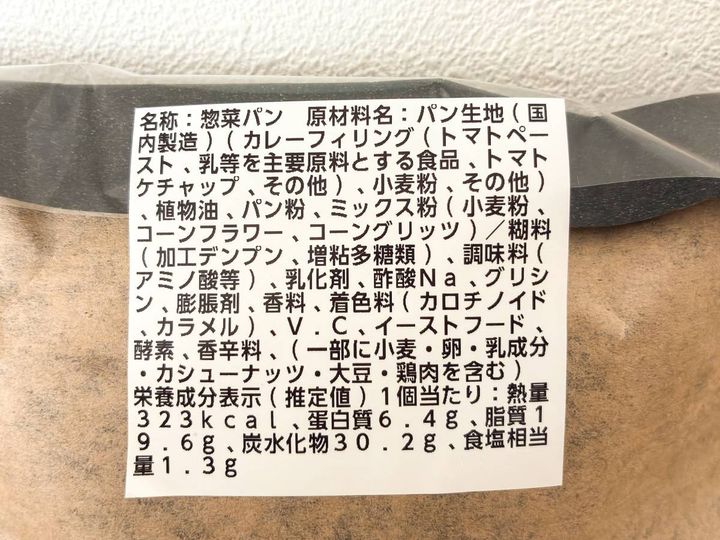 名称：惣菜パン　原材料名：パン生地（国
内製造）（カレーフィリング（トマトペー
スト、乳等を主要原料とする食品、トマト
ケチャップ、その他）、小麦粉、その他）
、植物油、パン粉、ミックス粉（小麦粉、
コーンフラワー、コーングリッツ）／糊料
（加工デンプン、増粘多糖類）、調味料（
アミノ酸等）、乳化剤、酢酸Ｎａ、グリシ
ン、膨脹剤、香料、着色料（カロチノイド
、カラメル）、Ｖ．Ｃ、イーストフード、
酵素、香辛料、（一部に小麦・卵・乳成分
・カシューナッツ・大豆・鶏肉を含む）
栄養成分表示（推定値）１個当たり：熱量
３２３ｋｃａｌ、蛋白質６．４ｇ、脂質１
９．６ｇ、炭水化物３０．２ｇ、食塩相当
量１．３ｇ